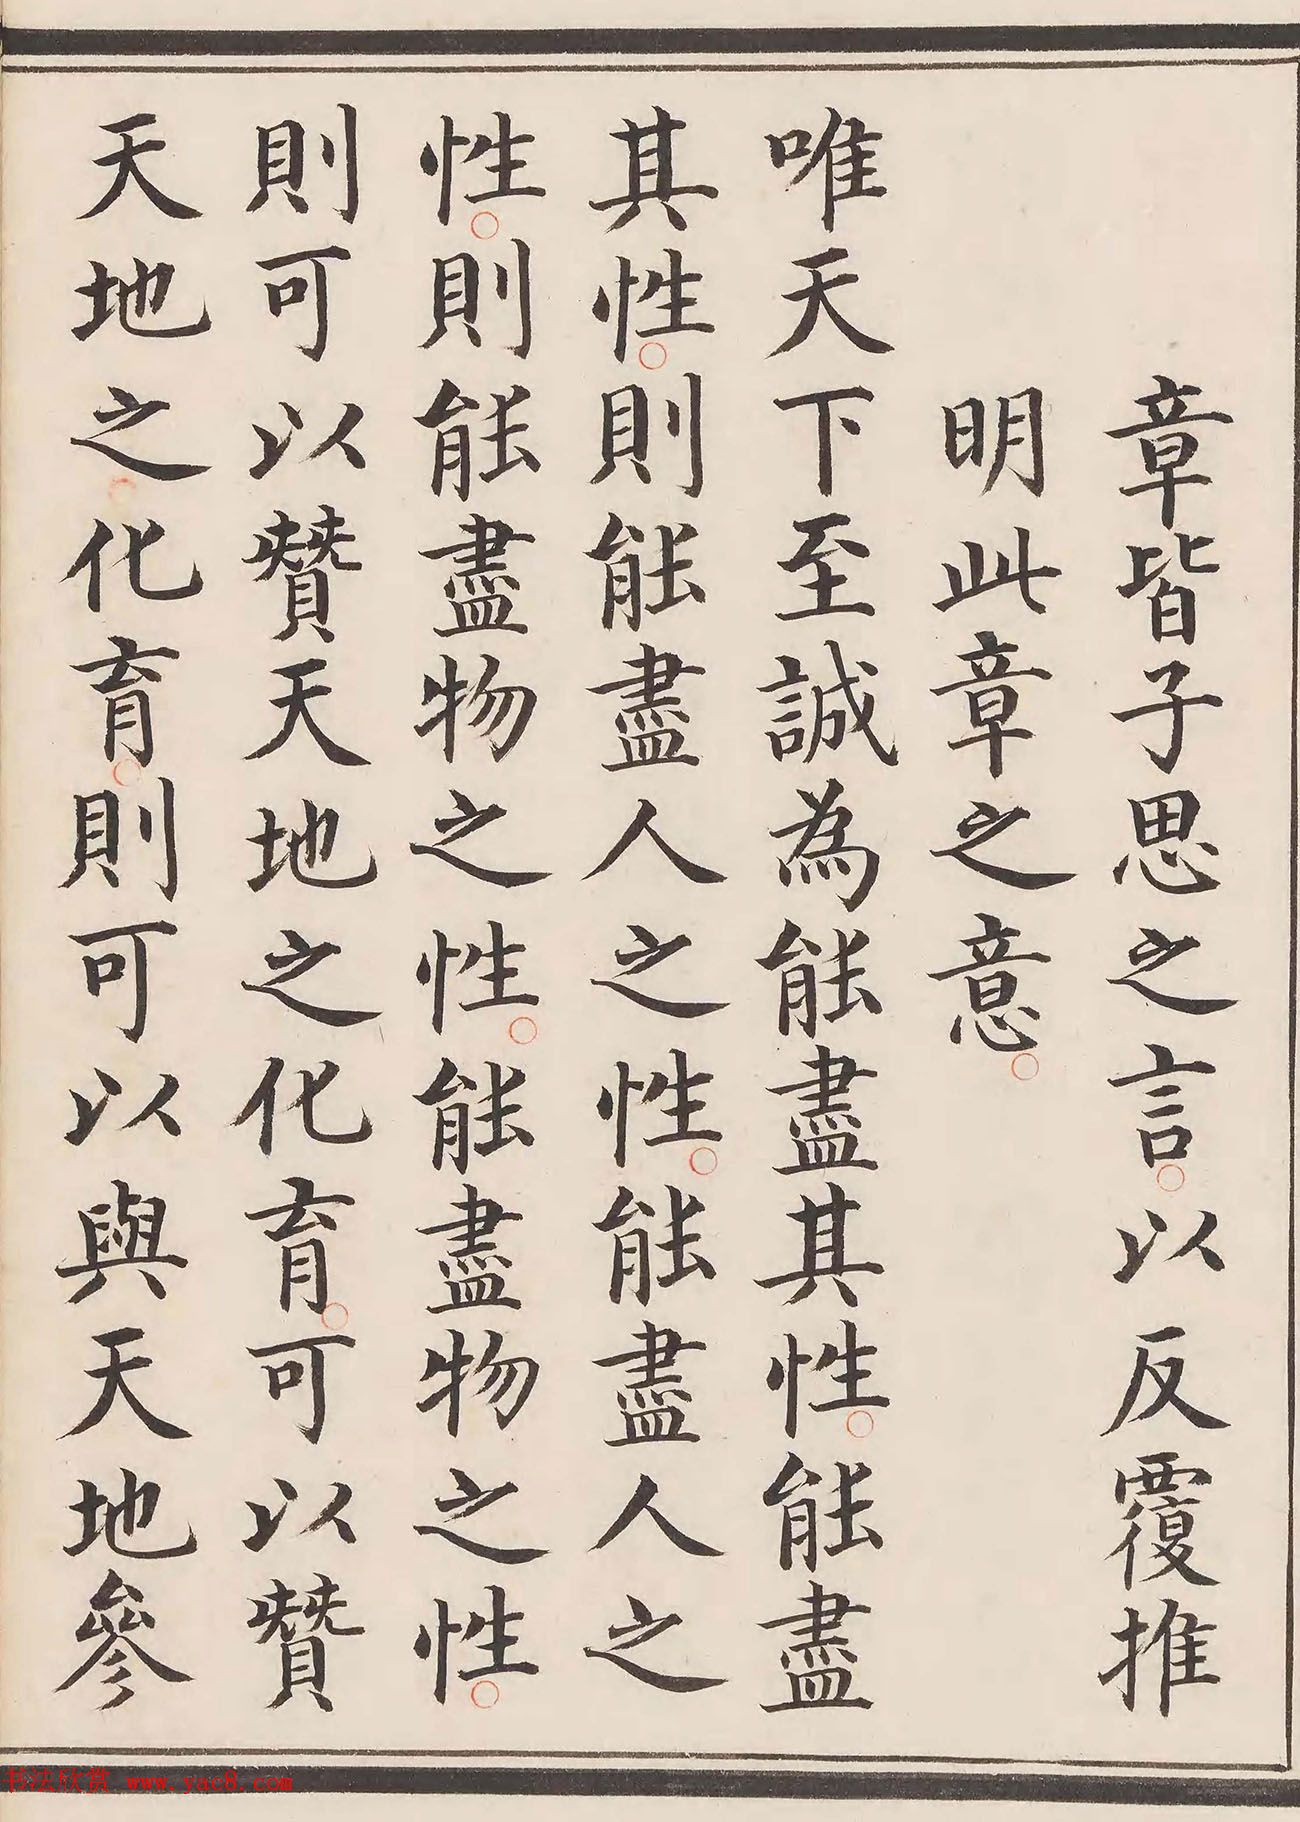 章皆子思之言。以反覆推
明此章之意。
唯天下至誠為能盡其性。能盡
其性。則能盡人之性。能盡人之
性。則能盡物之性。能盡物之性。
則可以贊天地之化育。可以贊
天地之。化育。則可以與天地參
书法欣赏 www.yac8.com